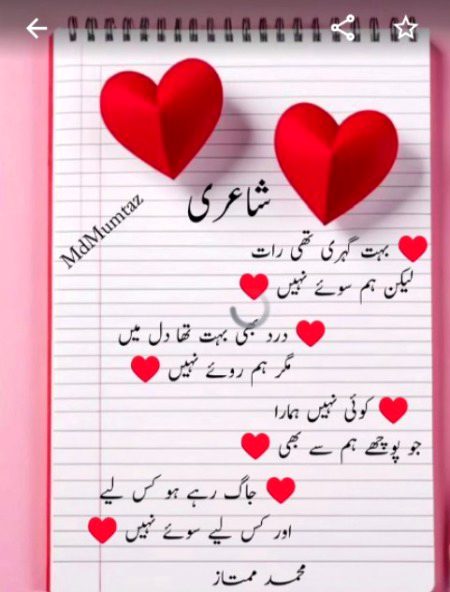 شاعری
MdMumtaz
بہت گہری تھی رات
لیکن ہم سوئے نہیں
درد بھی بہت تھا دل میں
مگر ہم روئے نہیں
کوئی نہیں ہمارا
جو پوچھے ہم سے بھی
جاگ رہے ہو کس لیے
اور کس لیے سوئے نہیں
محمد ممتاز